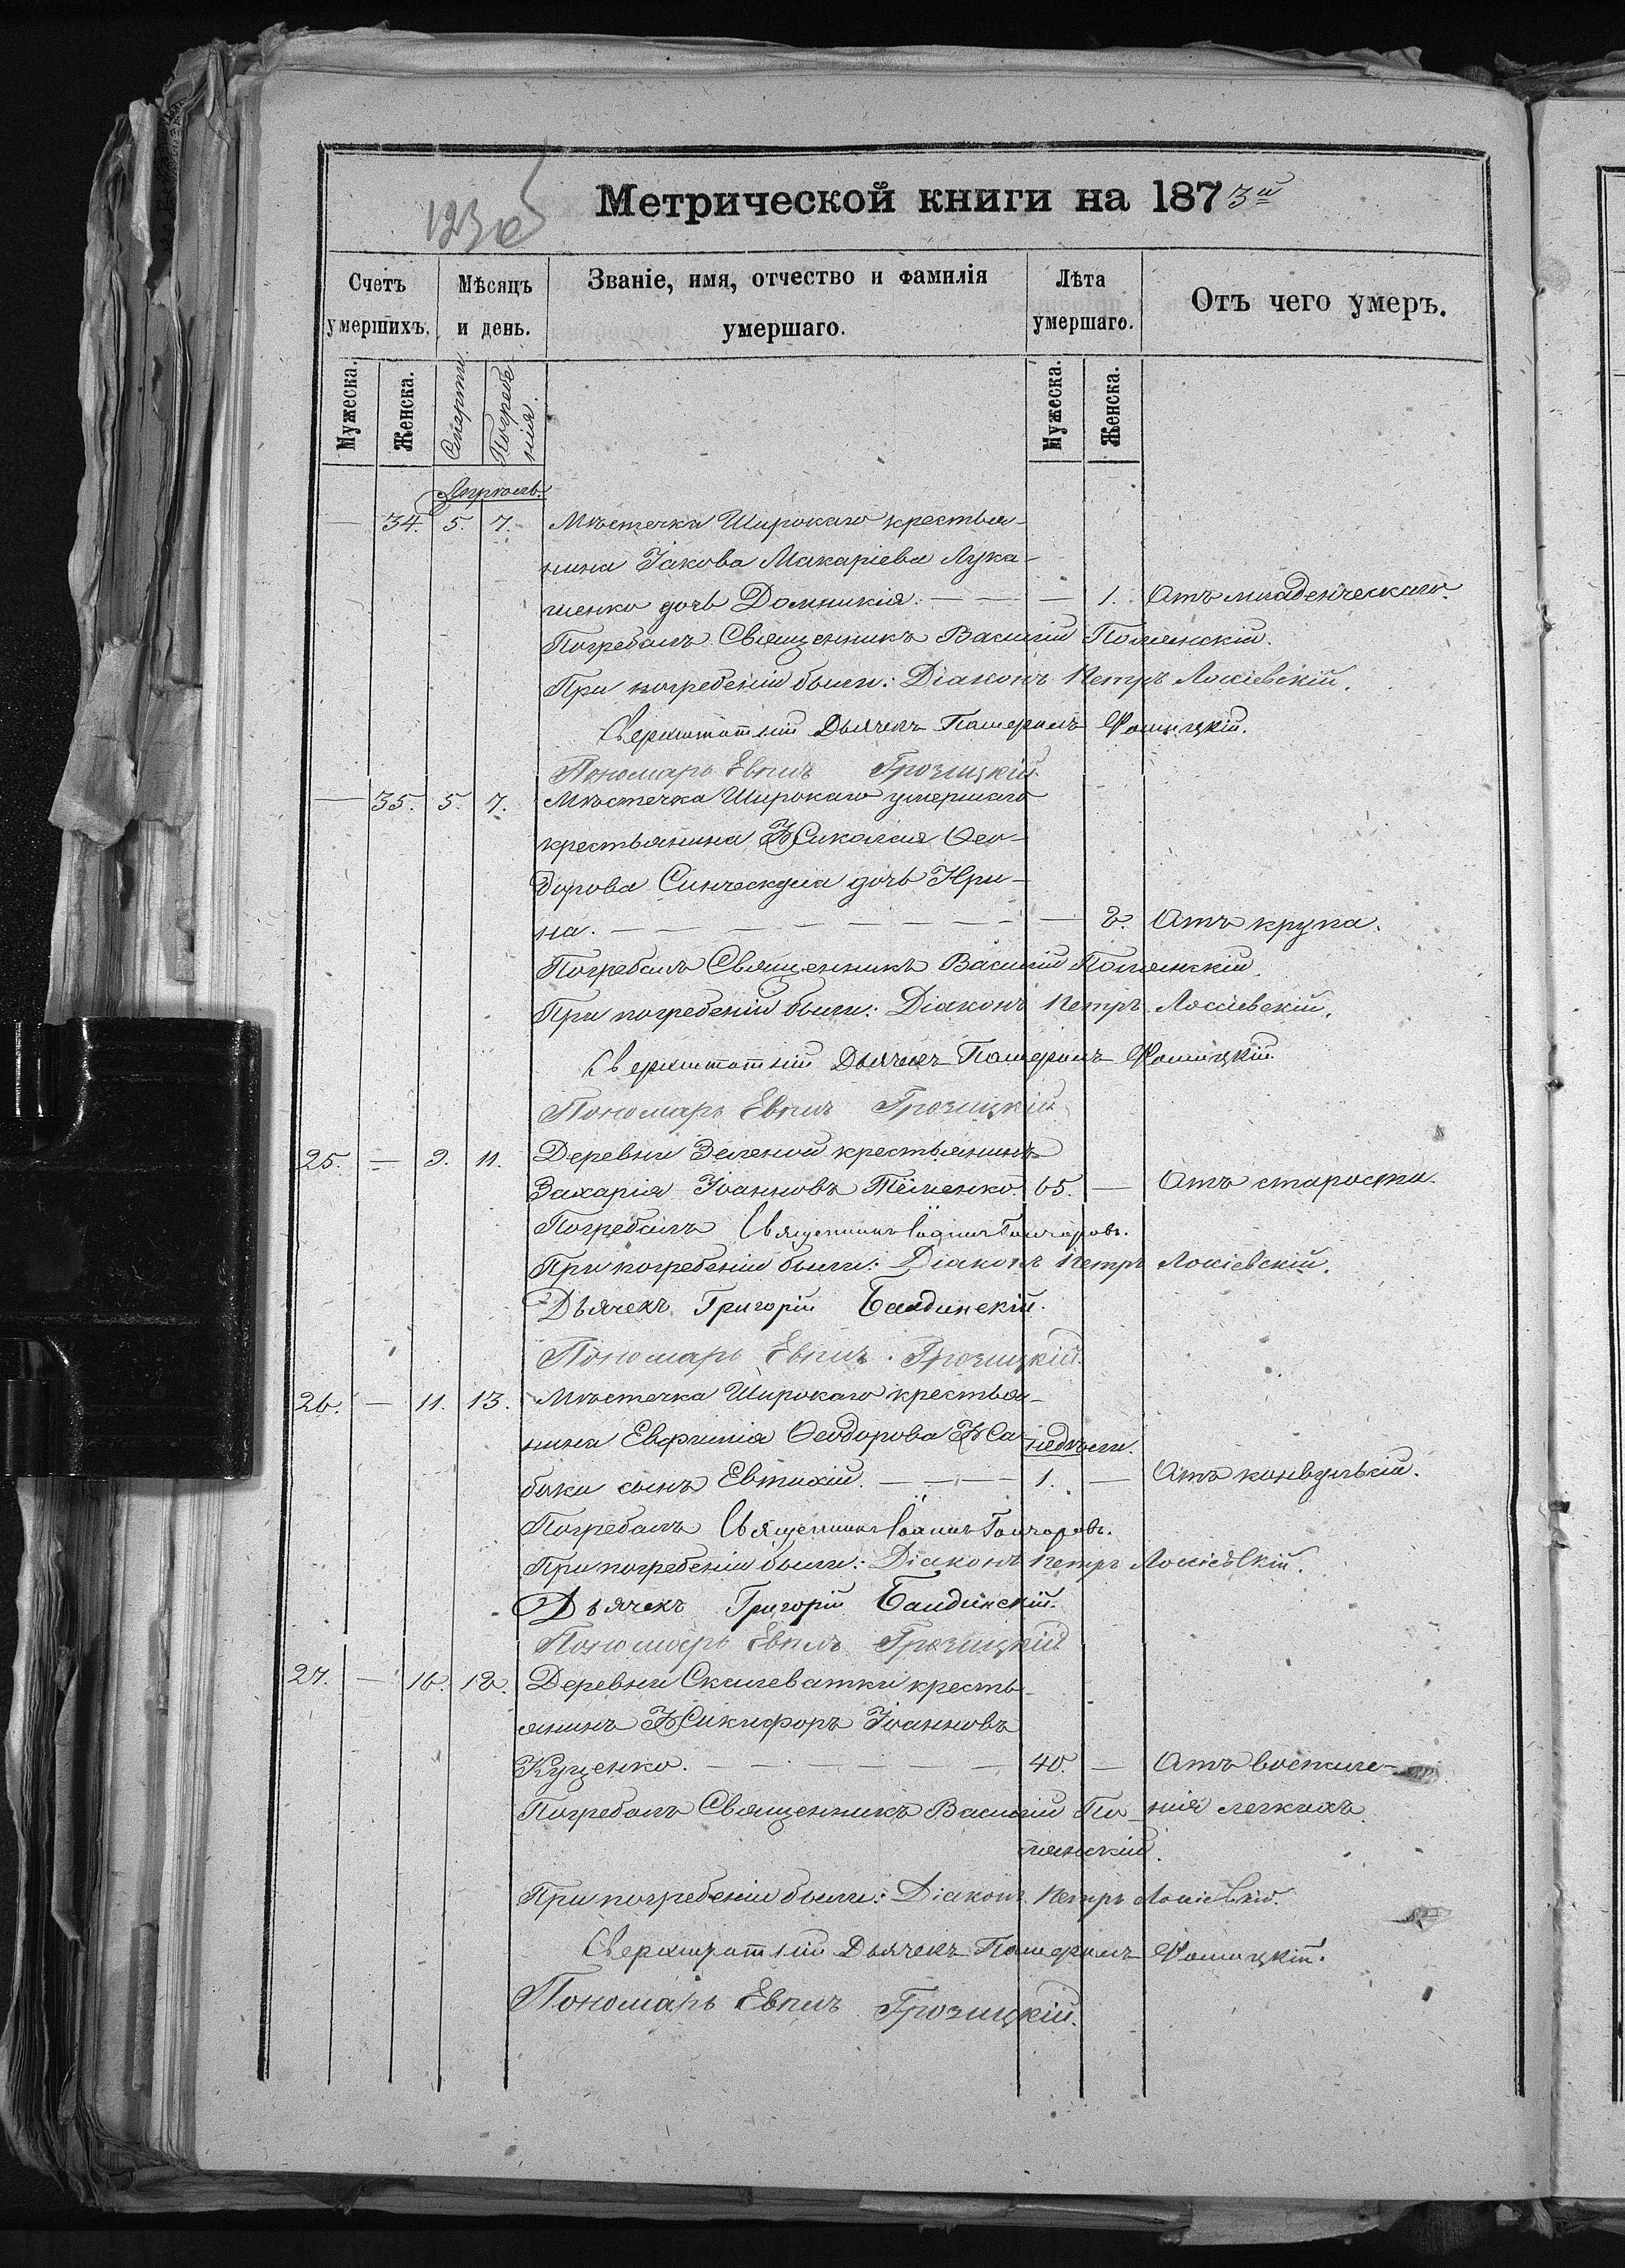 Метрической книги на 1873й
123об
Счетъ умершихъ. Мѣсяцъ и день. Званіе, имя, отчество и фамилія умершаго. Лѣта умершаго. Отъ чего умеръ.
Мужеска. Женска. Смерти. Погребенія. Мужеска. Женска.
Апрѣль.
— 34. 5. 7. Мѣстечка Широкаго крестья-
нина Іакова Макаріева Лука-
шенко дочь Домникія. — 1. Отъ младенческаго.
Погребалъ Священникъ Василій Полянскій.
При погребеніи были: Діаконъ Петръ Лосіевскій.
Сверхштатный Дьячекъ
Пономарь Евпилъ Грозицкій.
— 35. 5. 7. Мѣстечка Широкаго умершаго
крестьянина Николая Ѳео-
дорова дочь Ири-
на. — 2. Отъ крупа.
Погребалъ Священникъ Василій Полянскій.
При погребеніи были: Діаконъ Петръ Лосіевскій.
Сверхштатный Дьячекъ
Пономарь Евпилъ Грозицкій.
25. — 9. 11. Деревни Зеленой крестьянинъ
Захарія Іоанновъ Тёменко. 65. — Отъ старости.
Погребалъ Священникъ Іоаннъ Гончаровъ.
При погребеніи были: Діаконъ Петръ Лосіевскій.
Дьячекъ Григорій Балдинскій.
Пономарь Евпилъ Грозицкій.
26. — 11. 13. Мѣстечка Широкаго крестья-
нина Евфимія Ѳеодорова На- недѣли.
баки сынъ Евтихій. — 1. — Отъ конвульсій.
Погребалъ Священникъ Іоаннъ Гончаровъ.
При погребеніи были: Діаконъ Петръ Лосіевскій.
Дьячекъ Григорій Балдинскій.
Пономарь Евпилъ Грозицкій
27. — 16. 18. Деревни Скелеватки кресть-
янинъ Никифоръ Іоанновъ
Куценко. — 40. — Отъ воспале-
Погребалъ Священникъ Василій По- нія легкихъ.
лянскій.
При погребеніи были: Діаконъ Петръ Лосіевскій.
Сверхштатный Дьячекъ
Пономарь Евпилъ Грозицкій.